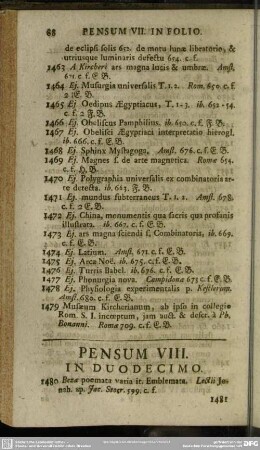 68 PENSUM VII. IN FOLIO.
de eclipsi solis 652. de motu lunæ libratorio, &
utriusque luminaris defectu 654. c. f.
1463 A Kircheri ars magna lucis & umbræ. Amst.
671. c. f. E. B.
1464 Ej. Musurgia universalis T. 1. 2. Rom. 650. c. f
2 E. B.
1465 Ej. Oedipus Ægyptiacus, T. 1-3. ib. 652-54.
c. f. 2 F. B.
1466 Ej. Obeliscus Pamphilius. ib. 650. c. f. F. B.
1467 Ej. Obelisci Ægyptiaci interpretatio hierogl.
ib. 666. c. f. E. B.
1468 Ej. Sphinx Mystagoga, Amst. 676. c. f. E. B.
1469 Ej. Magnes s. de arte magnetica. Romæ 654.
c. f. H. B.
1470 Ej. Polygraphia universalis ex combinatoria ar-
te detecta. ib. 663. F. B.
1471 Ej. mundus subterraneus T. 1. 2. Amst. 678.
c. f. 2 E. B.
1472 Ej. China, monumentis qua sacris qua profanis
illustrata. ib. 667. c. f. E. B.
1473 Ej. ars magna sciendi s. Combinatoria, ib. 669.
c. f. E. B.
1474 Ej. Latium. Amst. 671. c. f. E. B.
1475 Ej. Arca Noë. ib. 675. c. f. E. B.
1476 Ej. Turris Babel. ib. 676. c. f. E. B.
1477 Ej. Phonurgia nova. Campidonæ 673 c. f. E. B.
1478 Ej. Physiologia experimentalis p. Kestlerum.
Amst. 680. c. f. E. B.
1479 Musæum Kircherianum, ab ipso in collegio
Rom. S. I. inceptum, jam auct. & descr. à Ph.
Bonanni. Romæ 709. c. f. E. B.
PENSUM VIII.
IN DUODECIMO.
1480 Bezæ poemata varia it. Emblemata. Lectii Jo-
nah. ap. Jac. Stoer. 599. c. f.
1481